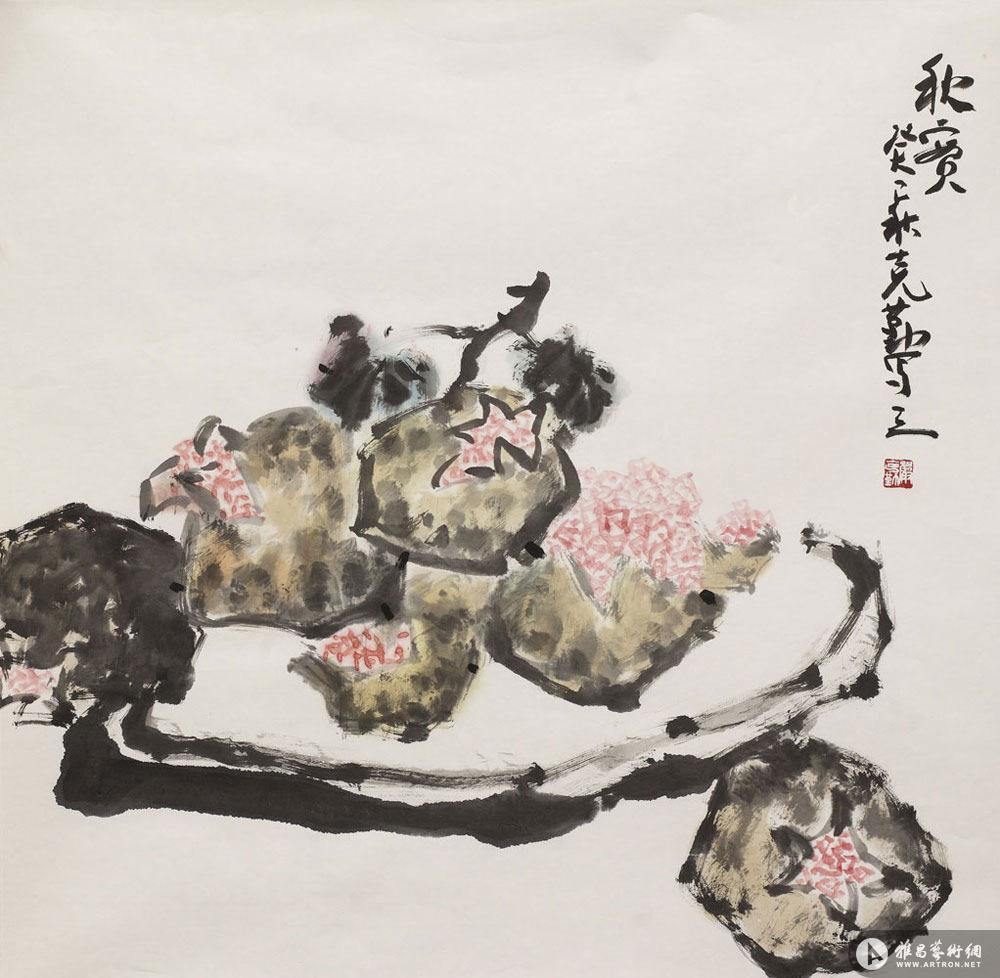 秋實
癸巳秋克勤写之
雅昌藝術網
WWW.ARTRON.NET